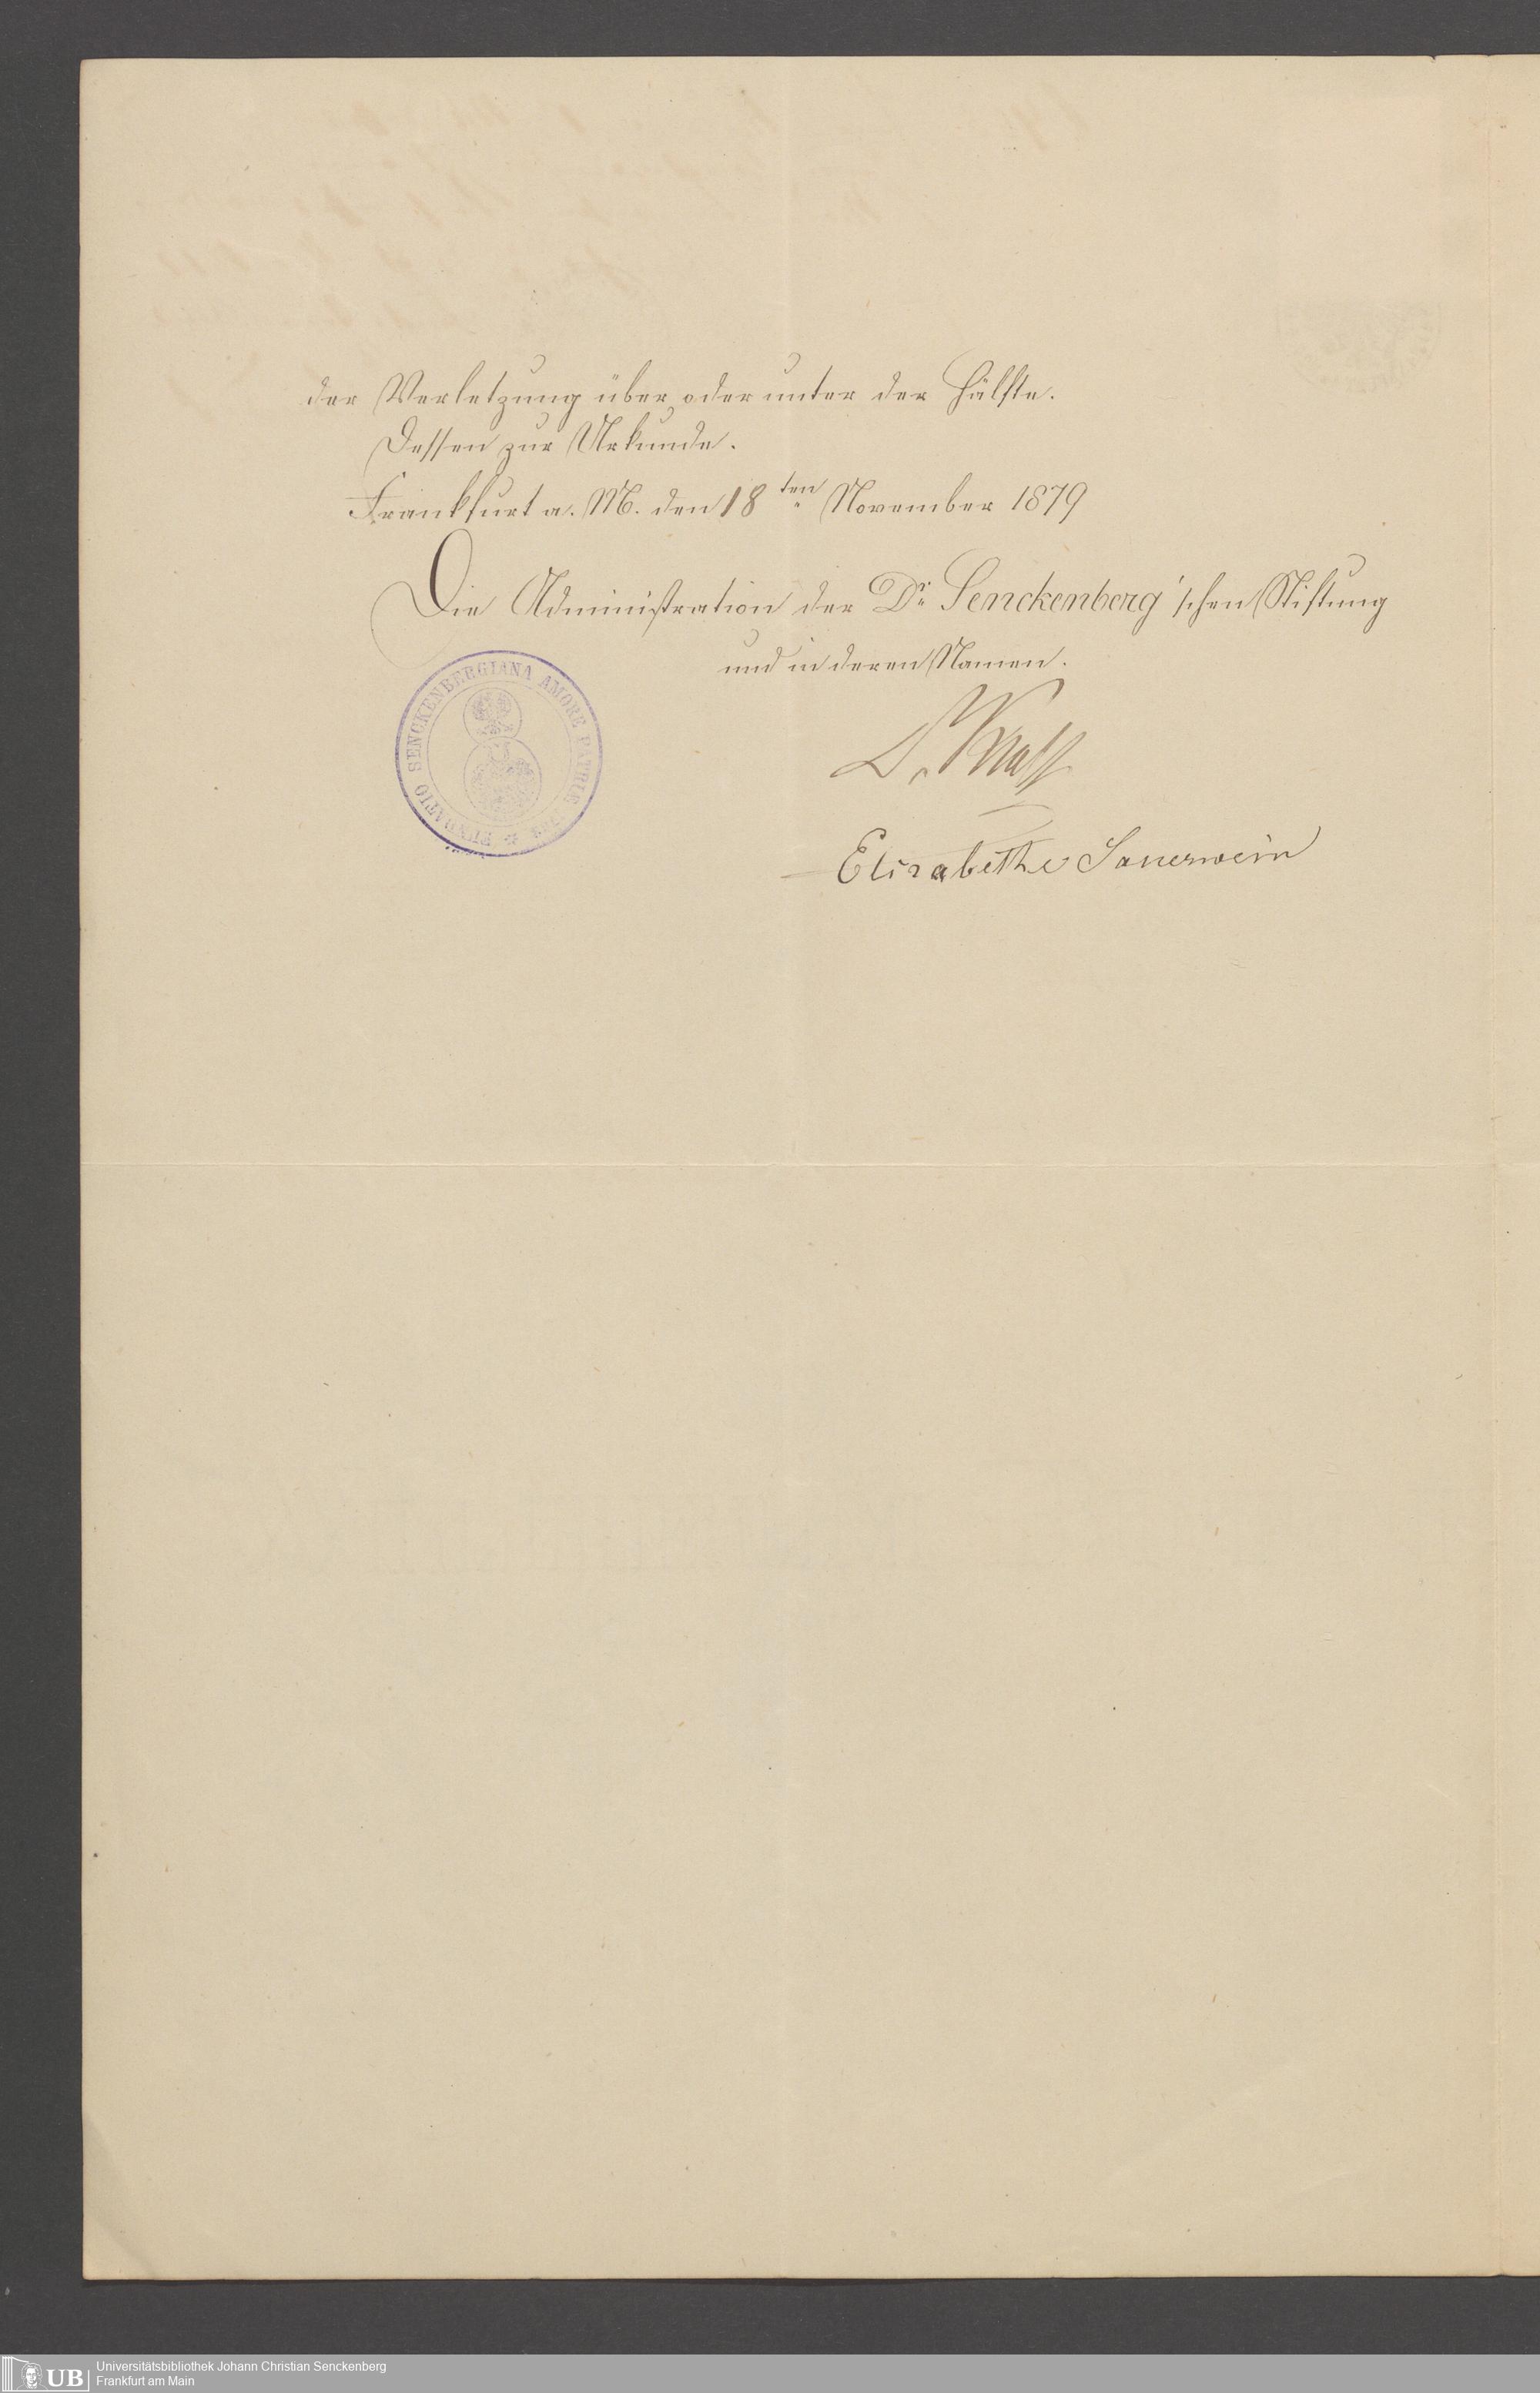 der Verletzung über oder unter der Hälfte.
Dessen zur Urkunde.
Frankfurt a. M. den 18ten November 1879
Die Administration der Dr. Senckenberg'schen Stiftung
und in deren Namen.
FUNDATIO SENCKENBERGIANA AMORE PATRIAE
Elisabethe Sauerwein
UB
Universitätsbibliothek Johann Christian Senckenberg
Frankfurt am Main